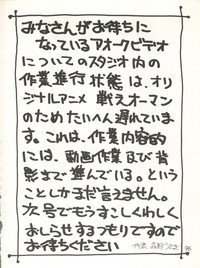 みなさんがお待ちに
なっているアオークビデオ
についてのスタジオ内の
作業進行状態は、オリ
ジナルアニメ 戦えオーマン
のためたいへん遅れていま
す。これは、作業内容的
には、動画作業及び背
景まで進んでいる。という
ことしかまだ言えません。
次号でもうすこしくわしく
おしらせするつもりですので
お待ちください
96